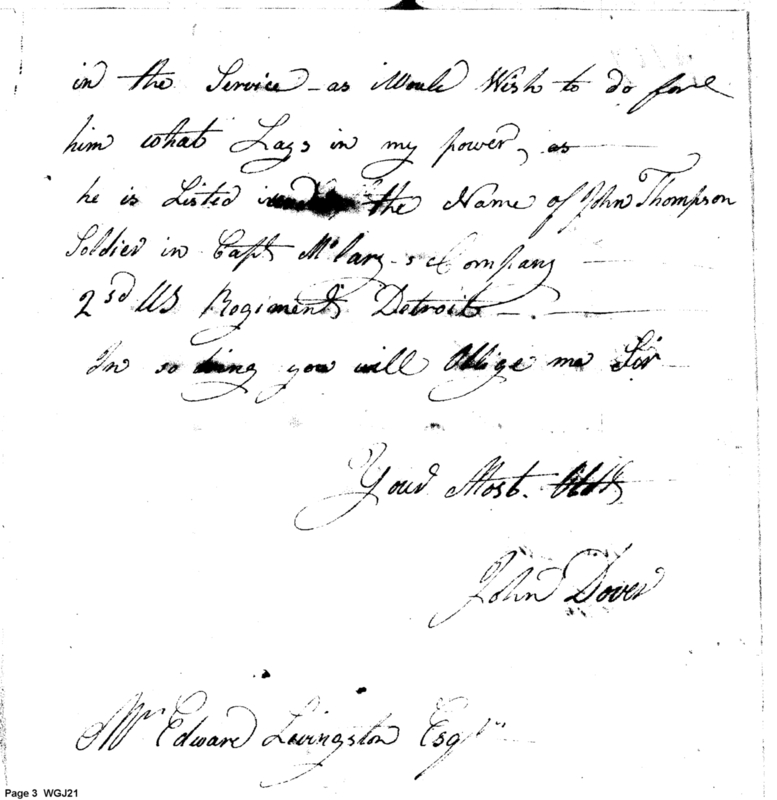 in the Service - as i Would Wish to do for
him what Lays in my power, as
he is Listed under the Name of John Thompson
Soldier in Capt McCary-s Company
2sd US Regiment Detroit - .
In so doing you will Oblige me Sir
Your Most. Obdt
John Dover
Mr Edward Livingston Esqr
Page 3 WGJ21